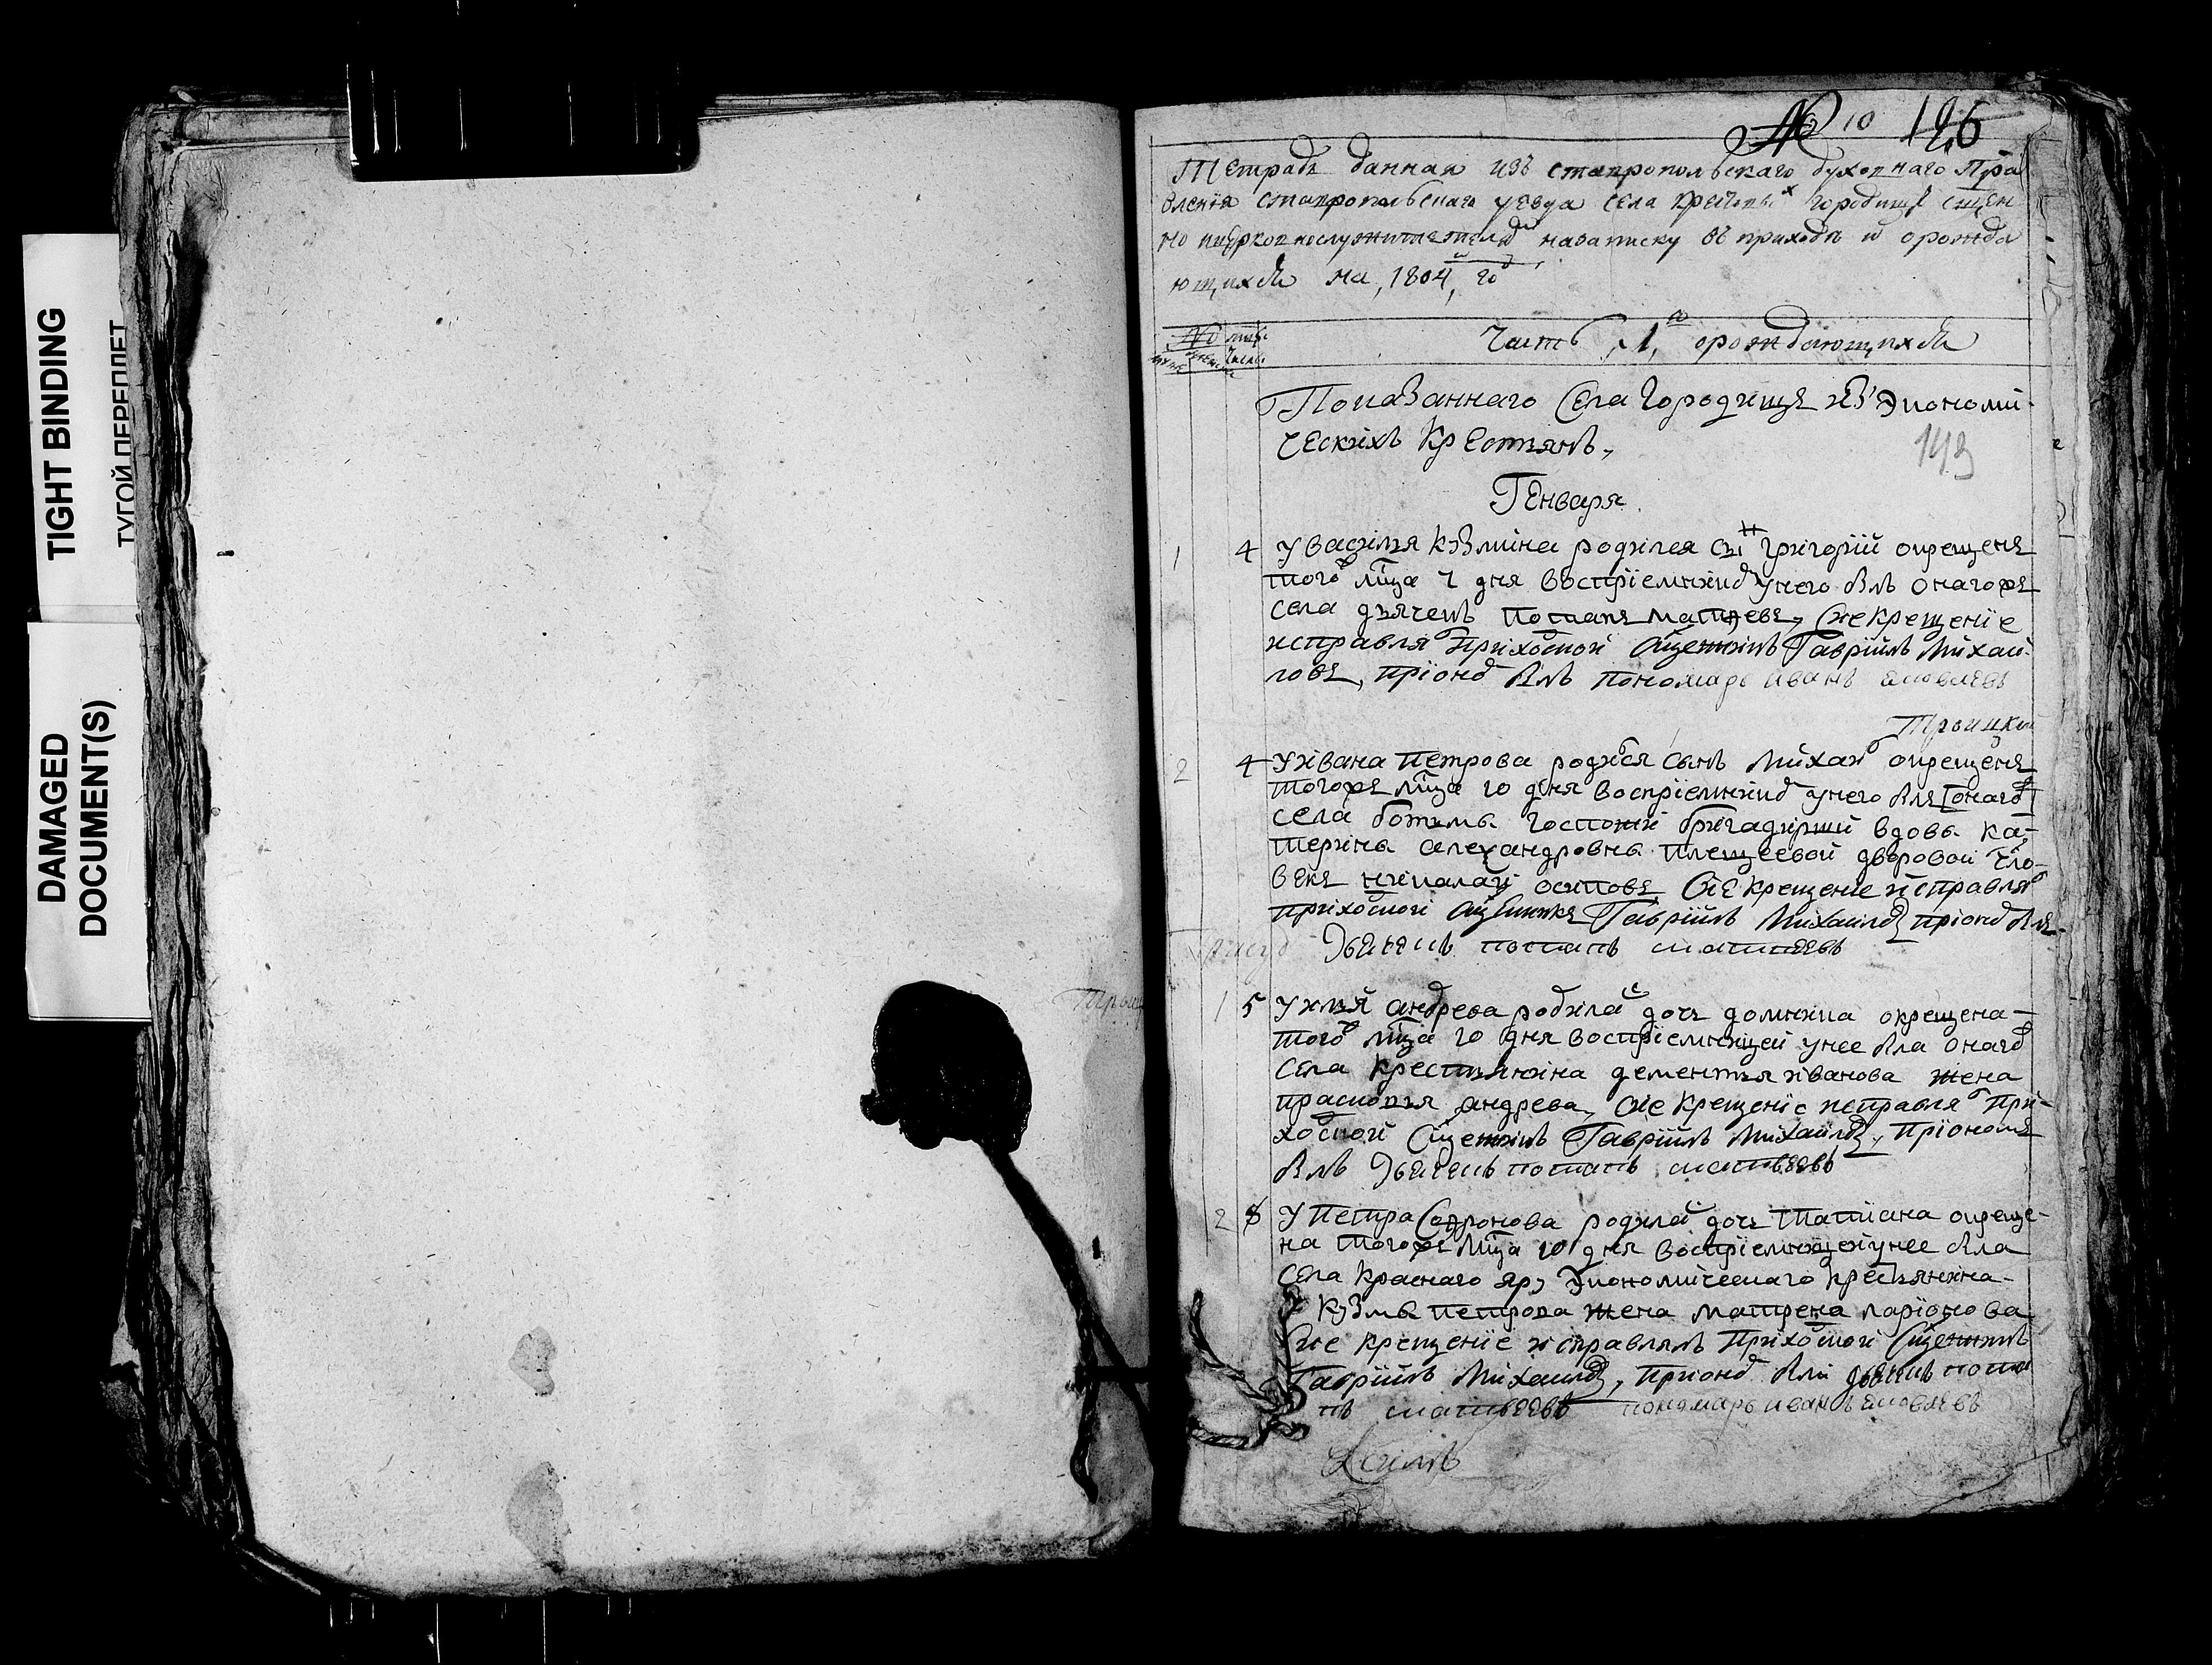 TIGHT BINDING
ТУГОЙ ПЕРЕПЛЕТ
DAMAGED
DOCUMENT(S)
№ 10 126
Тетрадь данная изъ ставропольскаго духовнаго Пра
вления ставропольскаго уезда села городищ сщен
но и церковнослужителямъ назаписку въ приходѣ о рожда
ющихся на 1804 го
Часть 1 о рождающихся
Показаннаго Села Городища изъ Экономи-
ческихъ Крестьянъ,
143
Генваря
1 4 У василья кузмина родился сынъ григорий окрещенъ
того мца 7 дня восприемникъ у него былъ онагожъ
села дьячекъ потапъ матвѣевъ, Сие крещение
исправлялъ приходской Сщенникъ Гаврiилъ Михаи-
ловъ, при ономъ былъ пономарь иванъ яковлевъ
Троицкий
2 4 У ивана петрова родился сынъ Михаилъ окрещенъ
тогожъ мца 10 дня восприемникъ у него былъ онаго
села госпожи бригадирши вдовы ка-
терины александровны плещеевой дворовой чло-
векъ николай осиповъ Сие крещение исправлялъ
приходской Сщенникъ Гаврiилъ Михаиловъ при ономъ былъ
Дьячекъ потапъ матвѣевъ
1 5 У ильи андреева родилась дочь домника окрещена
того мца 10 дня восприемницей у нее была онаго
села крестьянина дементья иванова жена
прасковья андреева, Сие крещение исправлялъ при-
ходской Сщенникъ Гаврiилъ Михаиловъ, при ономъ
былъ Дьячекъ потапъ матвѣевъ
2 8 У петра Сафронова родилась дочь татиана окреще-
на тогожъ мца 10 дня восприемницей у нее была
села Краснаго яру Экономическаго крестьянина
кузмы петрова жена матрена ларионова
Сие крещение исправлялъ приходской Сщенникъ
Гаврiилъ Михаиловъ, при ономъ были дьячекъ пота
пъ матвѣевъ пономарь иванъ яковлевъ